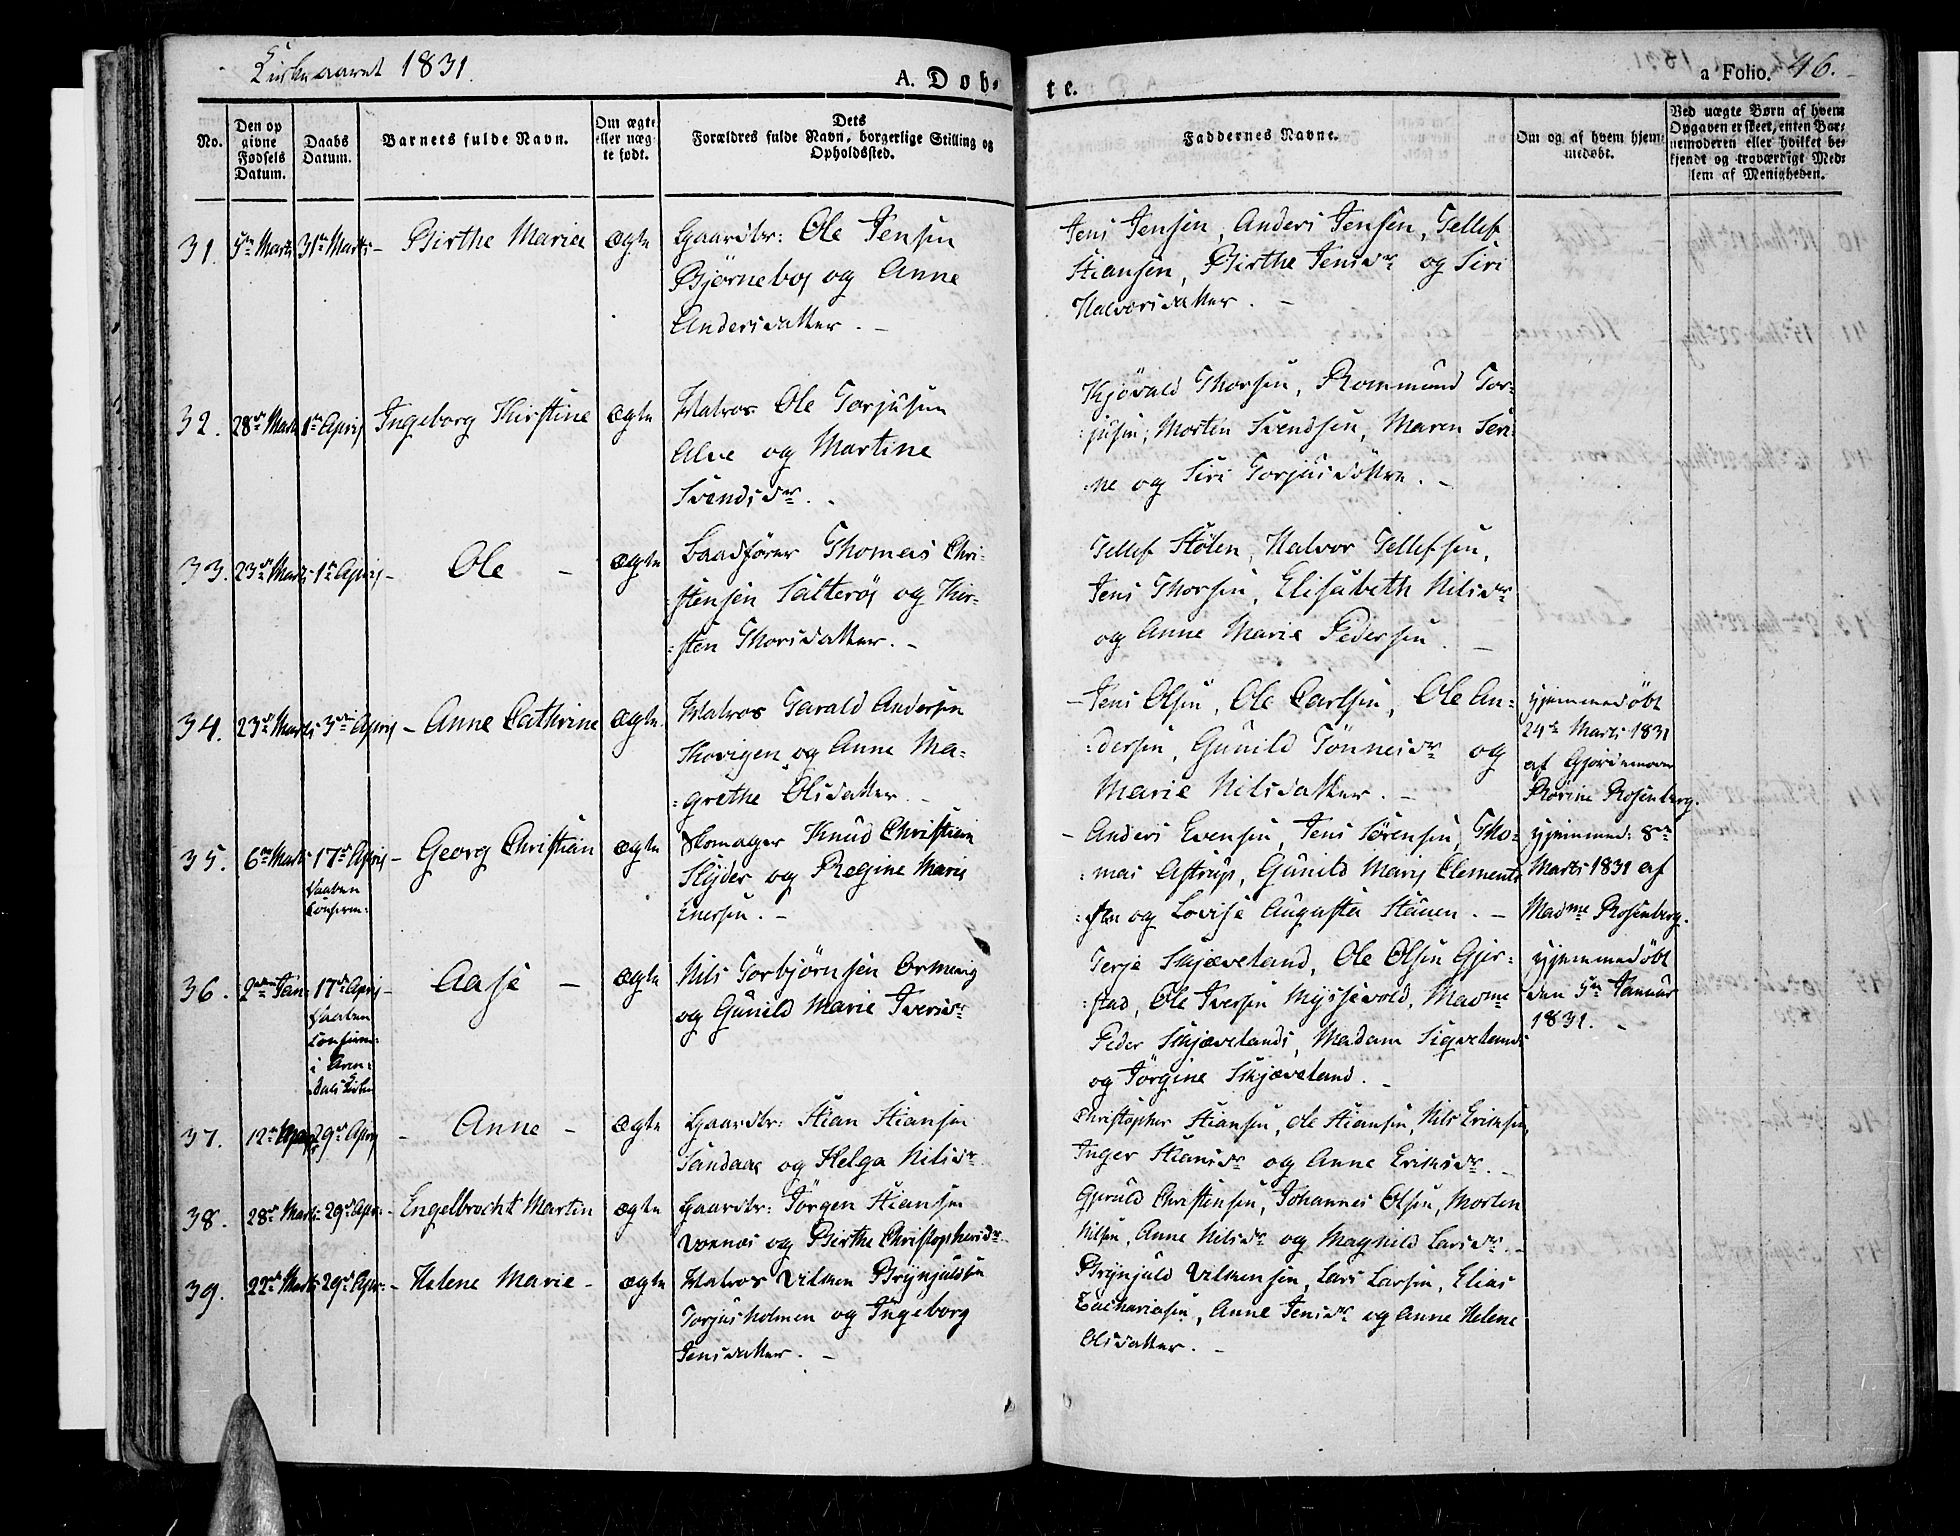 Kirkeaaret 1831.
A. Døb-
te.
a Folio. 46.
No.
Den op
givne
Fødsels
Datum.
Daabs
Datum.
Barnets fulde Navn.
Om ægte
eller uæg-
te født.
Dets
Forældres fulde Navn, borgerlige Stilling og
Opholdssted.
Faddernes Navne.
Om og af hvem hjem-
medøbt.
Ved uægte Børn af hvem
Opgaven er skeet, enten Bar-
nemoderen eller hvilket be-
kjendt og troværdigt Med-
lem af Menigheden.
31. 5te Marts 31te Marts - Birthe Maria ægte Gaardbr: Ole Jensen
Bjørnebo og Anne
Andersdatter. -
Jens Jensen, Anders Jensen, Tellef
Stiansen, Birthe Jensdr og Siri
Halvorsdatter. -
32. 28de Marts 1te April Ingeborg Kirstine ægte Matros Ole Torjusen
Alve og Martine
Svendsdr. -
Kjøvald Thorsen, Rommund Tor-
:jusen, Morten Svendsen, Maren Seri-
:ne og Siri Torjusdøttre. -
33. 23de Marts 1te April - Ole - ægte Baadfører Thomas Chri-
:stensen Salterøe og Kir-
:sten Thorsdatter. -
Tellef Stølen, Halvor Tellefsen,
Jens Thorsen, Elisabeth Nilsdr
og Anne Marie Pedersen. -
34. 23de Marts 3die April - Anne Cathrine ægte Matros Tarald Andersen
Skovigen og Anne Ma-
:grethe Olsdatter. -
- Jens Olsen, Ole Carlsen, Ole An-
:dersen, Gunild Tønnesdr og
Marie Nilsdatter. -
hjemmedøbt
24de Marts 1831
af Gjordemoder
Rørine Rosenberg.
35. 6te Marts 17de April - Georg Christian ægte Skomager Knud Christian
Daaben
Confirm:
Slyder og Regine Marie
Enersen. -
- Anders Evensen, Jens Sørensen, Tho-
:mas Astrup, Gunild Marie Clement-
:sen og Lovise Augusta Stauen. -
hjemmed: 8de
Marts 1831 af
Madme Rosenberg.
36. 2den Jan: 17de April - Aase - ægte Nils Torbjørnsen Ormevig
Daaben
Confirm:
i Aren-
:dals Kirke
og Gunild Marie Iversdr
Terje Skjæveland, Ole Olsen Gjer-
:stad, Ole Iversen Myssevold, Madme
Peder Skjævelands, Madam Sigvelands
og Jørgine Skjæveland. -
hjemmedøbt
den 5te Januar
1831. -
37. 12te Marts 29de April - Anne - ægte Gaardbr: Stian Stiansen
Sandaae og Helga Nilsdr
Christopher Stiansen, Ole Stiansen, Nils Eriksen,
Inger Stiansdr og Anne Eriksdr. -
38. 28de Marts 29de Apr: - Engelbrecht Martin ægte Gaardbr: Jørgen Stiansen
Vonnes og Birthe Christophersdr. -
Gjeruld Christensen, Johannes Olsen, Morten
Nilsen, Anne Nilsdr og Magnild Larsdr. -
39. 22de Marts 29de Apr: - Helene Marie - ægte Matros Vilken Brynjuldsen
Torjusholmen og Ingeborg
Jensdatter. -
Brynjuld Vilkensen, Lars Larsen, Elias
Zachariasen, Anne Jensdr og Anne Helene
Olsdatter. -